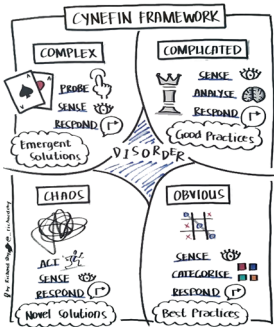 CYNEFIN FRAMEWORK
COMPLEX
PROBE
SENSE
RESPOND
Emergent
Solutions
COMPLICATED
SENSE
ANALYSE
RESPOND
Good Practices
DISORDER
CHAOS
ACT
SENSE
RESPOND
Novel Solutions
OBVIOUS
SENSE
CATEGORISE
RESPOND
Best Practices
by Richard